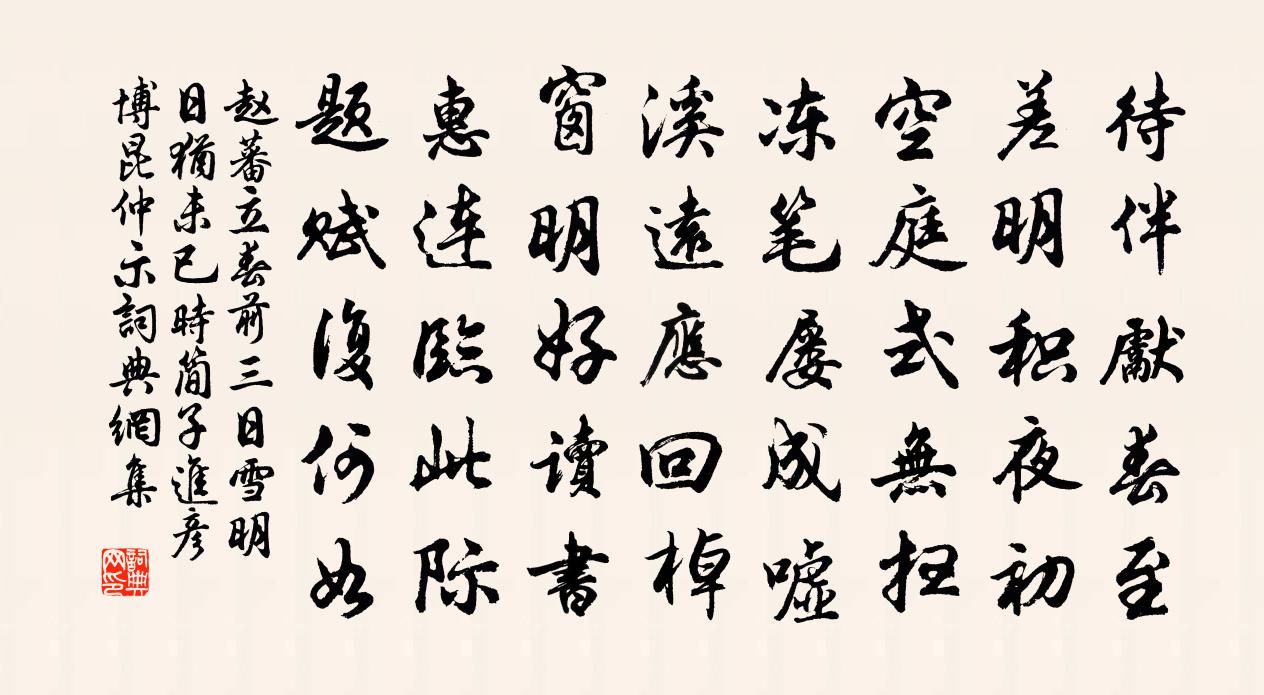 待伴獻春至
差明积夜初
空庭式無扫
冻笔屡成嘘
溪遠應回棹
窗明好讀書
惠连臨此际
题赋復何如
赵蕃立春前三日雪明
日猶未已時简子進彦
博昆仲示詞典網集
詞典网印